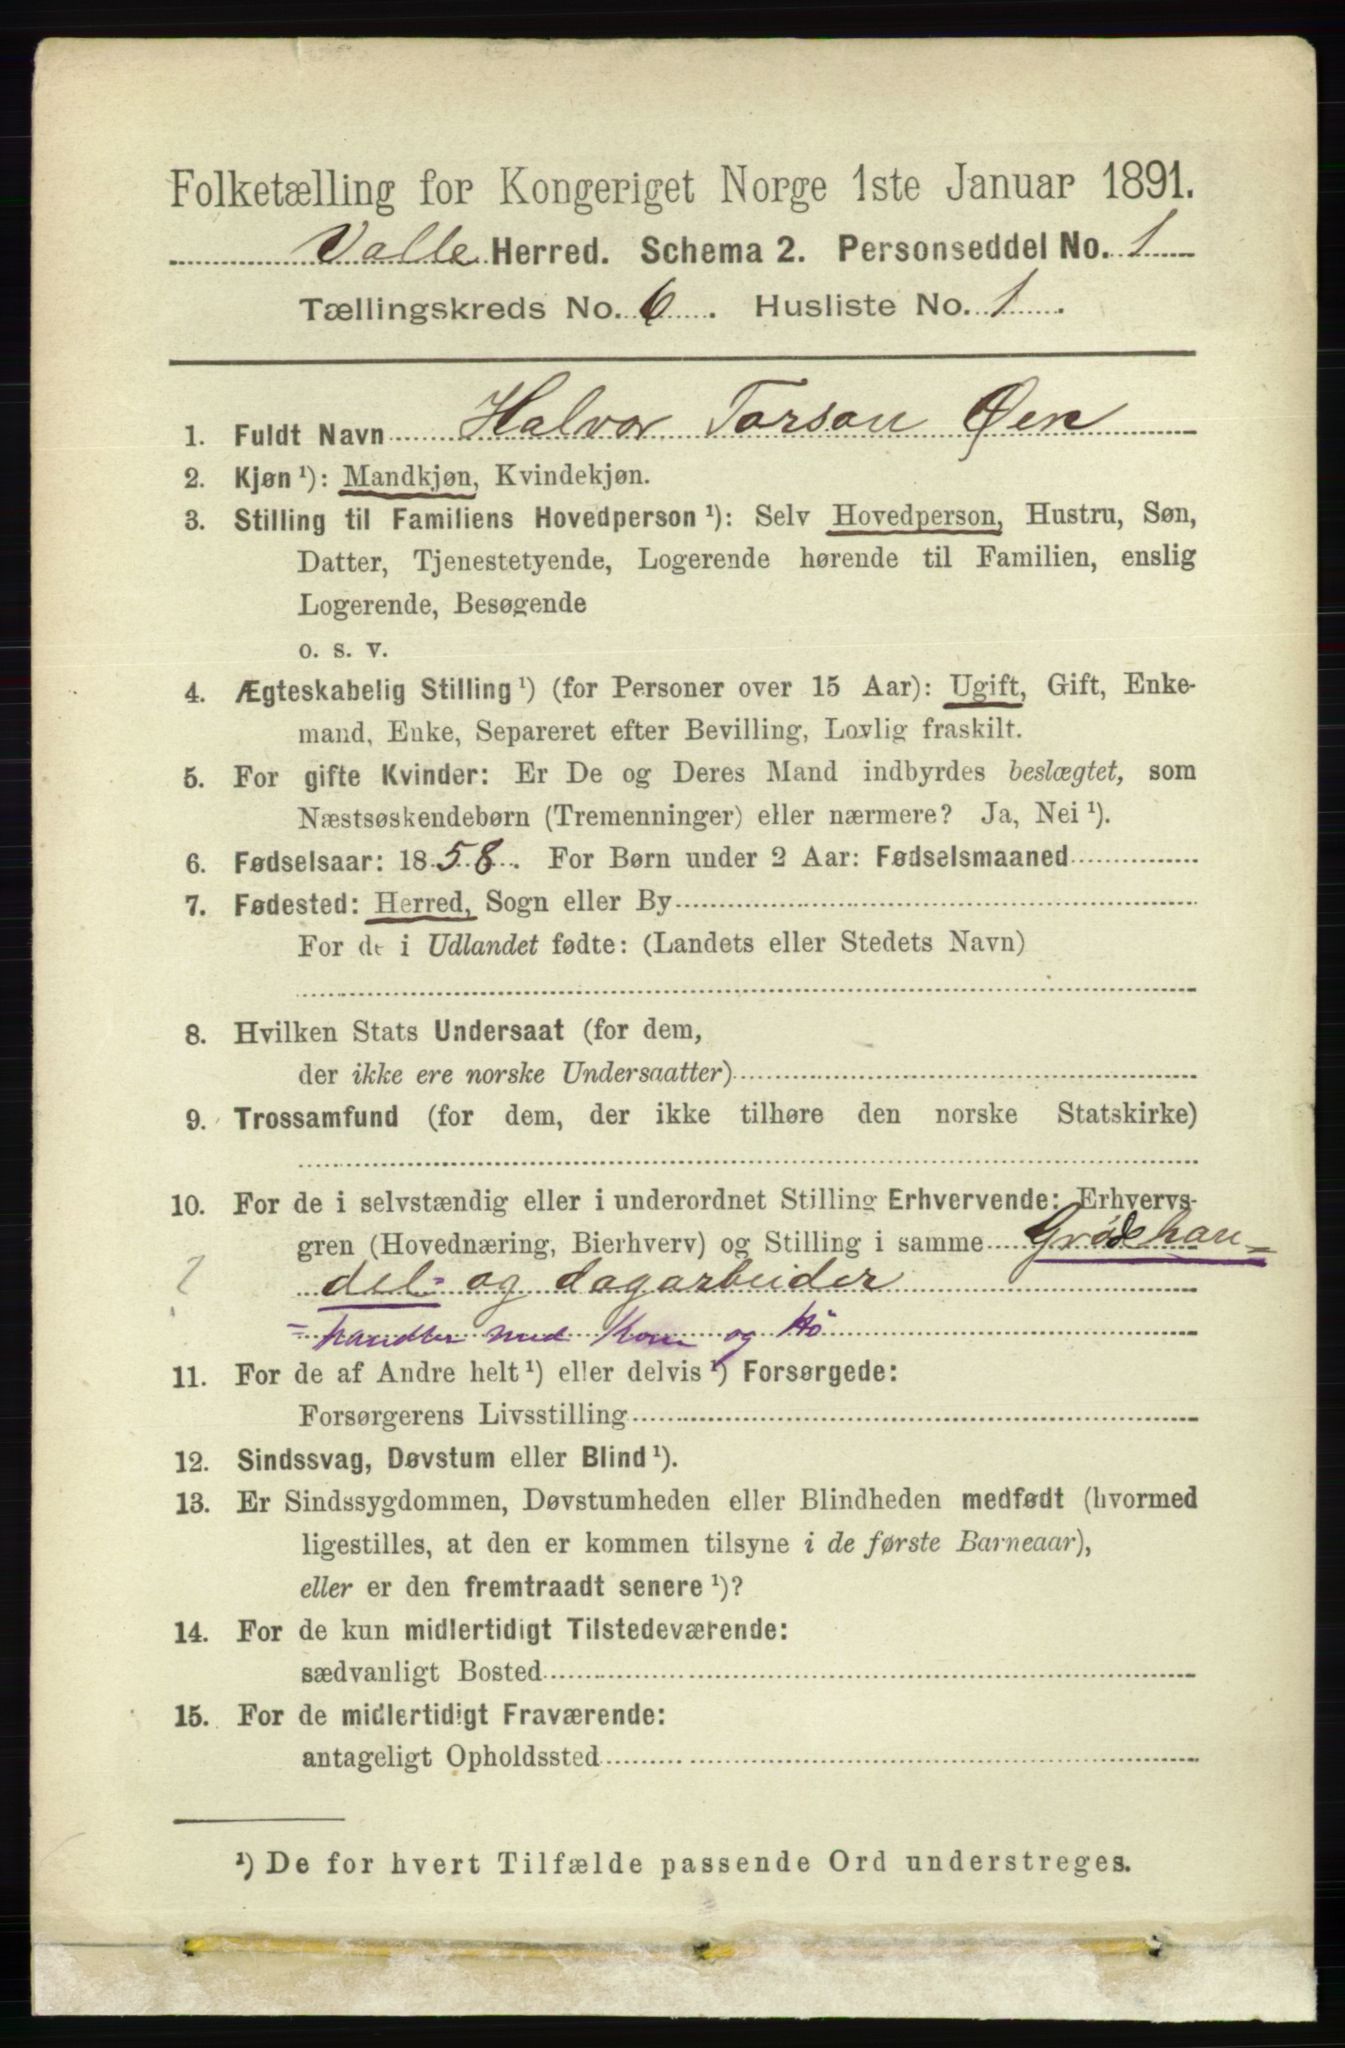 Folketælling for Kongeriget Norge 1ste Januar 1891.
Valle Herred. Schema 2. Personseddel No. 1
Tællingskreds No. 6. Husliste No. 1.
1. Fuldt Navn Halvor Torson Øen
2. Kjøn ¹): Mandkjøn, Kvindekjøn.
3. Stilling til Familiens Hovedperson ¹): Selv Hovedperson, Hustru, Søn,
Datter, Tjenestetyende, Logerende hørende til Familien, enslig
Logerende, Besøgende
o. s. v.
4. Ægteskabelig Stilling ¹) (for Personer over 15 Aar): Ugift, Gift, Enke-
mand, Enke, Separeret efter Bevilling, Lovlig fraskilt.
5. For gifte Kvinder: Er De og Deres Mand indbyrdes beslægtet, som
Næstsøskendebørn (Tremenninger) eller nærmere? Ja, Nei ¹).
6. Fødselsaar: 1858. For Børn under 2 Aar: Fødselsmaaned
7. Fødested: Herred, Sogn eller By
For de i Udlandet fødte: (Landets eller Stedets Navn)
8. Hvilken Stats Undersaat (for dem,
der ikke ere norske Undersaatter)
9. Trossamfund (for dem, der ikke tilhøre den norske Statskirke)
10. For de i selvstændig eller i underordnet Stilling Erhvervende: Erhvervs-
gren (Hovednæring, Bierhverv) og Stilling i samme Grødehan=
? del= og dagarbeider
= handler med Korn og Hø
11. For de af Andre helt ¹) eller delvis ¹) Forsørgede:
Forsørgerens Livsstilling
12. Sindssvag, Døvstum eller Blind ¹).
13. Er Sindssygdommen, Døvstumheden eller Blindheden medfødt (hvormed
ligestilles, at den er kommen tilsyne i de første Barneaar),
eller er den fremtraadt senere ¹)?
14. For de kun midlertidigt Tilstedeværende:
sædvanligt Bosted
15. For de midlertidigt Fraværende:
antageligt Opholdssted
¹) De for hvert Tilfælde passende Ord understreges.